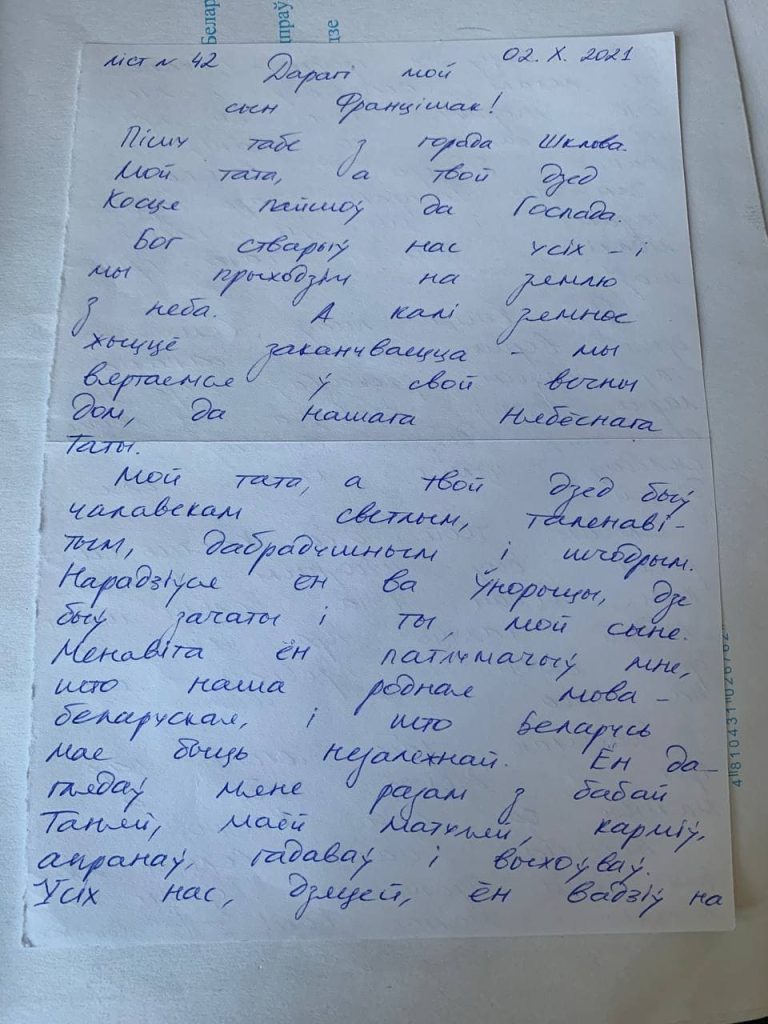 Белар
праў
дзе
ліст № 42
02. X. 2021
Дарагі мой
сын Францішак!
Пішу табе з горада Шклова.
Мой тата, а твой дзед
Косця пайшоў да Госпада.
Бог стварыў нас усіх – і
мы прыходзім на зямлю
з неба. А калі зямное
жыццё заканчваецца – мы
вяртаемся ў свой вечны
дом, да нашага Нябёснага
Таты.
Мой тата, а твой дзед быў
чалавекам светлым, таленаві-
тым, дабрадушным і шчодрым.
Нарадзіўся ён ва Ўнорыцы, дзе
быў зачаты і ты, мой сыне.
Менавіта ён патлумачыў мне,
што наша родная мова –
беларуская, і што Беларусь
мае быць незалежнай. Ён да-
глядаў мяне разам з бабай
Таняй, маёй матуляй, карміў,
апранаў, гадаваў і выхоўваў.
Усіх нас, дзяцей, ён вадзіў на
4 810431 026762